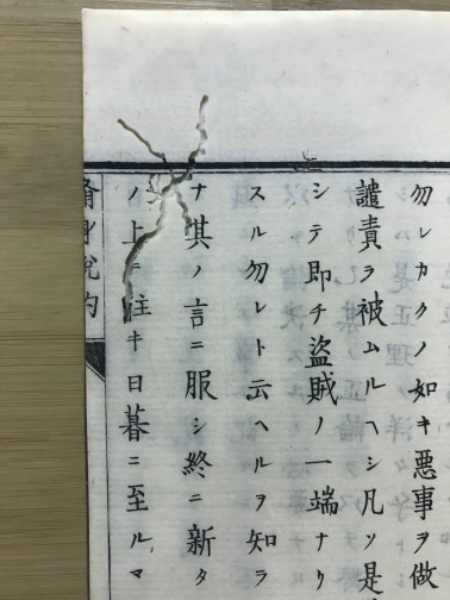 勿レカクノ如キ悪事ヲ做
譴責ヲ被ムルヘシ凡ソ是
シテ即チ盗賊ノ一端ナリ
スル勿レト云ヘルヲ知ラ
ナ其ノ言ニ服シ終ニ新タ
ノ上ニ注キ日暮ニ至ルマ
脩身説約